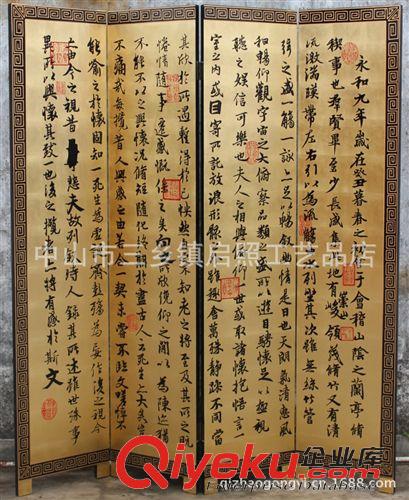 永和九年歲在癸丑暮春之初會于會稽山陰之蘭亭脩
禊事也羣賢畢至少長咸集此地有崇山峻領茂林脩竹又有清
流激湍暎帶左右引以為流觴曲水列坐其次雖無絲竹管
弦之盛一觴一詠亦足以暢敘幽情是日也天朗氣清惠風
和暢仰觀宇宙之大俯察品類之盛所以遊目騁懷足以極視
聽之娛信可樂也夫人之相與俯仰一世或取諸懷抱悟言一
室之內或因寄所託放浪形骸之外雖趣舍萬殊靜躁不同當
其欣於所遇暫得於己快然自足不知老之將至及其所之既
惓情隨事遷感慨係之矣向之所欣俛仰之間以為陳迹猶
不能不以之興懷況脩短隨化終期於盡古人云死生亦大矣豈
不痛哉每攬昔人興感之由若合一契未嘗不臨文嗟悼不
能喻之於懷固知一死生為虛誕齊彭殤為妄作後之視今
亦由今之視昔悲夫故列敘時人錄其所述雖世殊事
異所以興懷其致一也後之攬者亦將有感於斯文
中山市三乡镇启照工艺品店
Qiyeku.com
企业库
qizhaogongyi.cn.1688.com